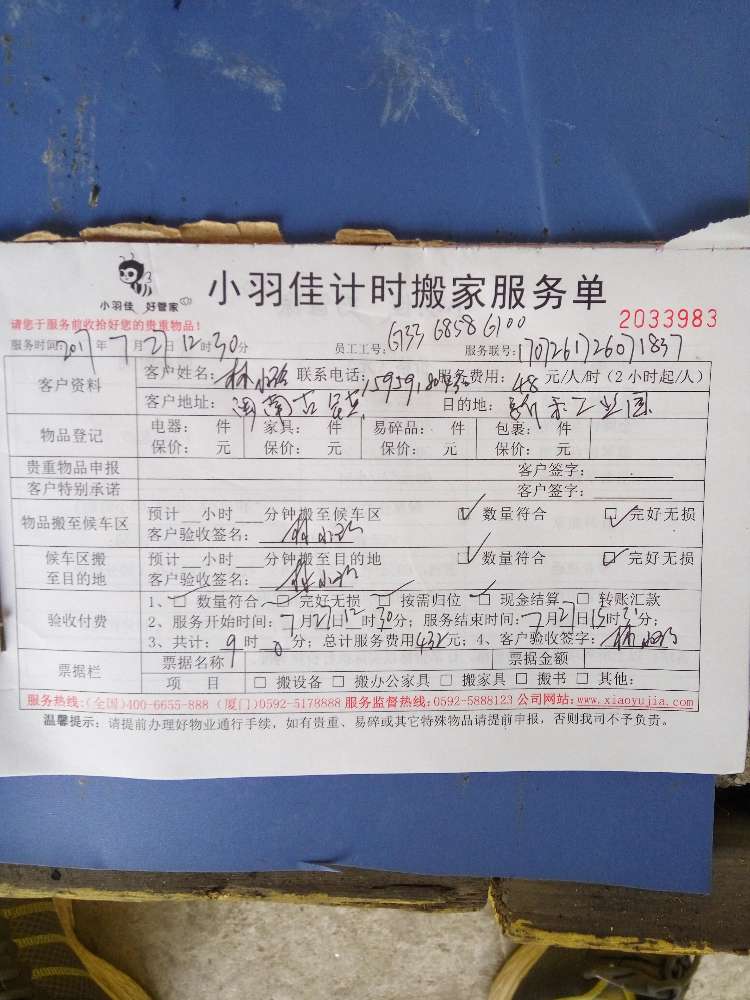 小羽佳 好管家
小羽佳计时搬家服务单
请您于服务前收拾好您的贵重物品!
2033983
服务时间:2017年7月27日12时30分 员工工号: 服务联号:
客户资料 客户姓名:林 联系电话: 服务费用:48元/人/时(2小时起/人)
客户地址:闽南古 目的地:工业园
物品登记 电器: 件 家具: 件 易碎品: 件 包裹: 件
保价: 元 保价: 元 保价: 元 保价: 元
贵重物品申报 客户签字:
客户特别承诺 客户签字:
物品搬至候车区 预计__小时___分钟搬至候车区 ☑ 数量符合 ☑ 完好无损
客户验收签名:林
候车区搬至目的地 预计__小时___分钟搬至目的地 ☑ 数量符合 ☑ 完好无损
客户验收签名:林
验收付费 1、☑ 数量符合 ☑ 完好无损 ☑ 按需归位 ☑ 现金结算 □ 转账汇款
2、服务开始时间:7月27日12时30分; 服务结束时间:7月27日15时31分;
3、共计:9时0分; 总计服务费用432元; 4、客户验收签字:林
票据栏 票据名称 票据金额
项 目 □ 搬设备 □ 搬办公家具 □ 搬家具 □ 搬书 □ 其他:
服务热线:(全国)400-6655-888 (厦门)0592-5178888 服务监督热线:0592-5888123 公司网站:www.xiaoyujia.com
温馨提示: 请提前办理好物业通行手续, 如有贵重、易碎或其它特殊物品请提前申报, 否则我司不予负责。